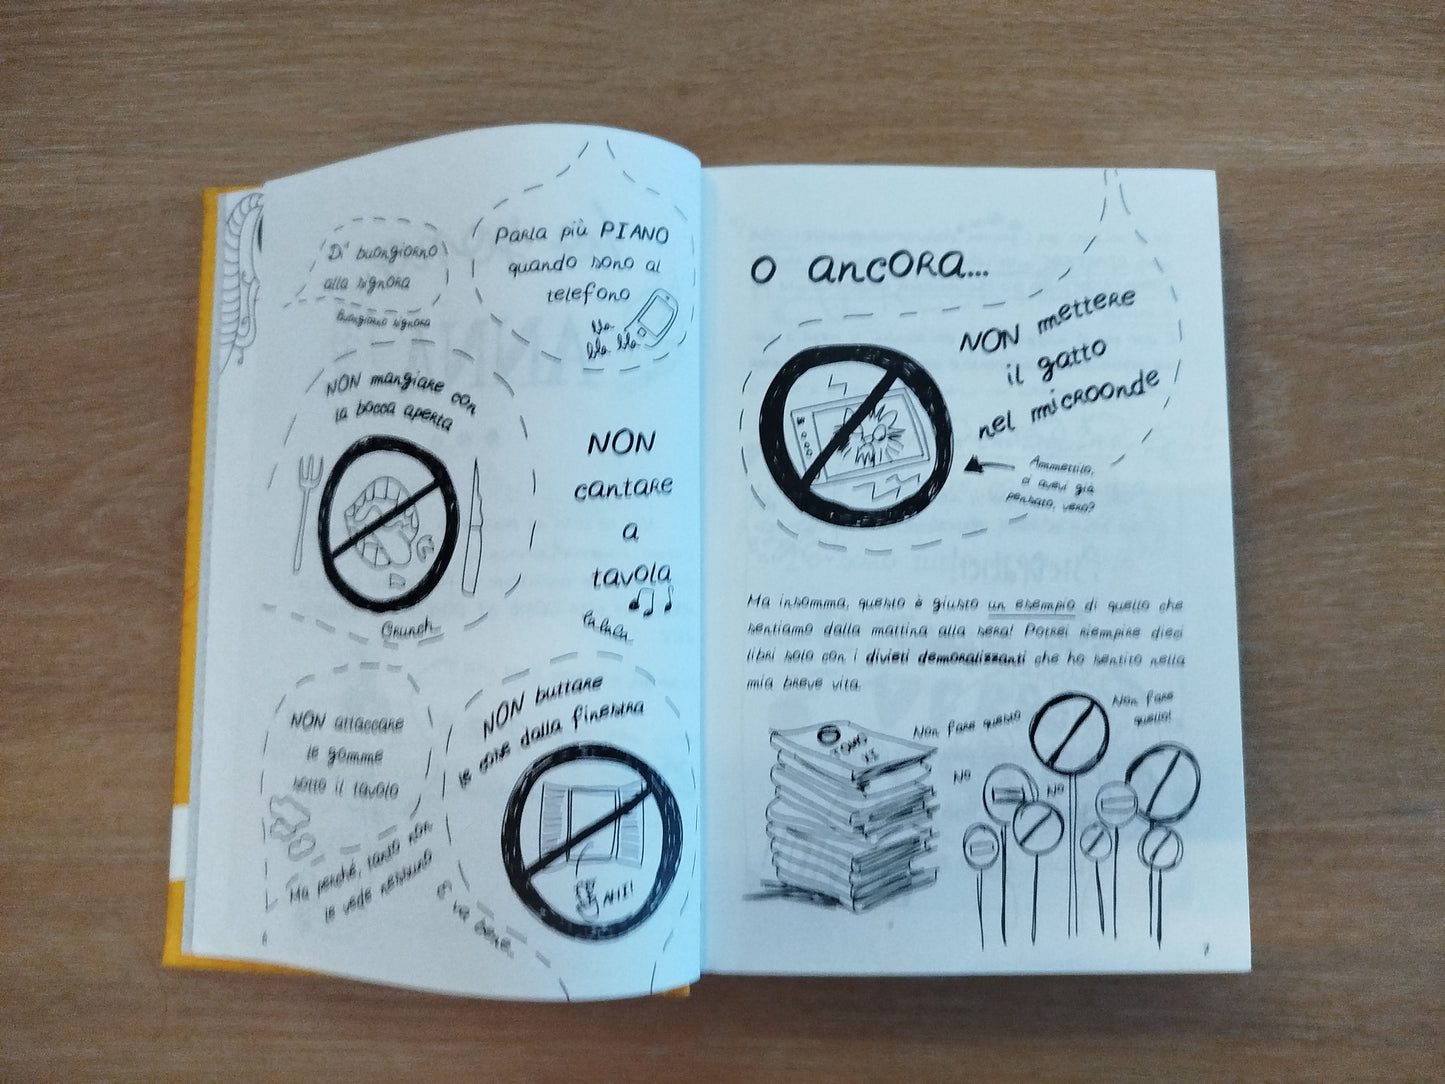 Di' buongiorno
alla signora
Buongiorno signora
Parla più PIANO
quando sono al
telefono
bla
bla bla
NON mangiare con
la bocca aperta
Crunch
NON
cantare
a
tavola
la la la
NON attaccare
le gomme
sotto il tavolo
Ma perché, tanto non
le vede nessuno
NON buttare
le cose dalla finestra
AHI!
E va bene..
O ANCORA...
NON mettere
il gatto
nel microonde
Ammettilo,
ci avevi già
pensato, vero?
Ma insomma, questo è giusto un esempio di quello che
sentiamo dalla mattina alla sera! Potrei riempire dieci
libri solo con i divieti demoralizzanti che ho sentito nella
mia breve vita.
TOMO
XI
Non fare questo
Non fare
quello!
No
No
7